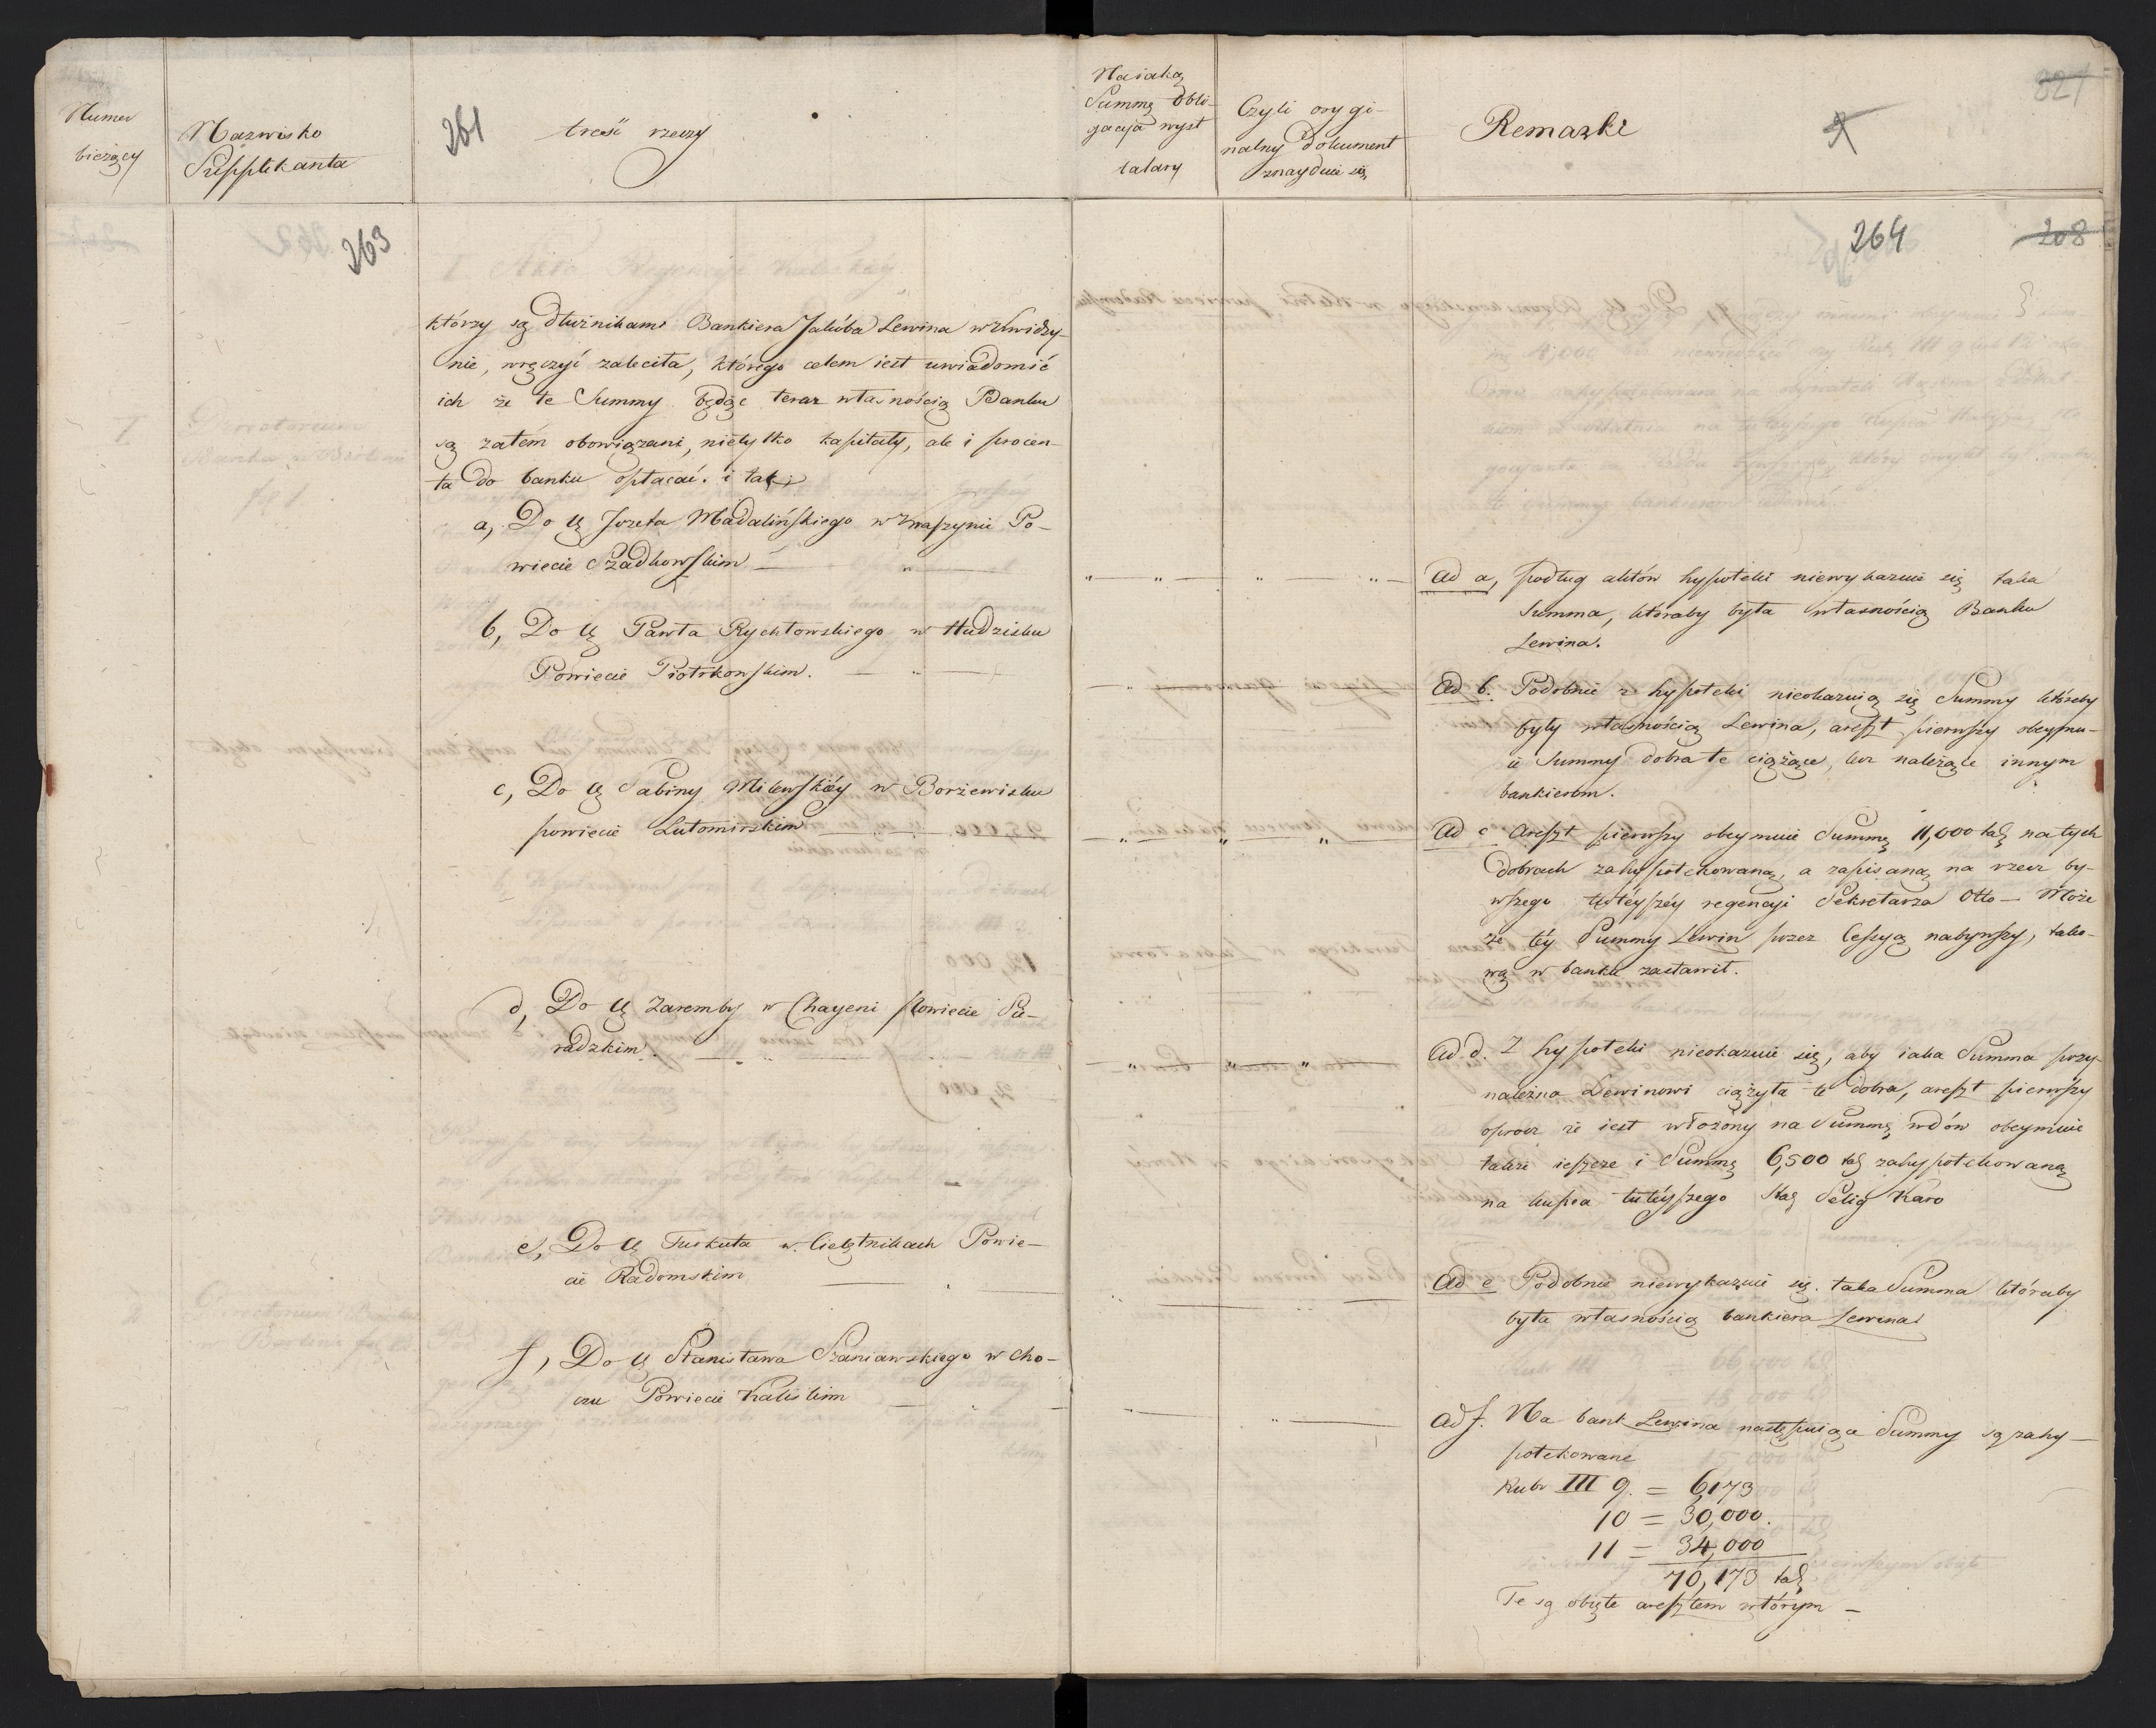 Numer
bieżący
Nazwisko
Supplikanta
261
treść rzeczy
Na iaką
Summę obli-
gacyja wyst
talary
Czyli orygi-
nalny dokument
znayduie się
Remarki
321
263
264
208
którzy są dłużnikami Bankiera Jakóba Lewina
nie, wręczyć zaleciła, którego celem iest uwiadomić
ich że te Summy będąc teraz własnością Banku
są zatém obowiązani, nietylko kapitały, ale i procen-
ta do banku opłacać. i tak:
a, Do U Jozefa Madalińskiego w Po-
wiecie Szadkowskim
b, Do U Pawła Rychłowskiego w Hudzisku
Powiecie Piotrkowskim.
c, Do U Sabiny Milewskiéy w Borżewisku
powiecie Lutomirskim
d, Do U Zaremby w Chayeni powiecie Sie-
radzkim.
e, Do U Turkuła w. Cielętnikach Powie-
cie Radomskim
f, Do U Stanisława Szaniawskiego w Cho-
czu Powiecie Kaliskim
Ad a, podług aktów hypoteki niewykazuie się taka
Summa, któraby była własnością Banku
Lewina.
Ad b. Podobnie z hypoteki nieokazuią się Summy któreby
były własnością Lewina, areszt pierwszy obeymu-
ie Summy dobra te ciążące, lecz należące innym
bankierom.
Ad c Areszt pierwszy obeymuie Summę 11,000 tal na tych
dobrach zahypotekowaną, a zapisaną na rzecz by-
wszego tutéyszéy regencyi Sekretarza Otto — Może
że téy Summy Lewin przez Cessyą nabywszy, tako-
wą w banku zastawił.
Ad d. Z hypoteki nieokazuie się, aby iaka Summa przy-
należna Lewinowi ciążyła te dobra, areszt pierwszy
oprócz że iest włożony na Summę wdów obeymuie
także ieszcze i Summę 6,500 tal zahypotekowaną
na kupca tutéyszego Selig Karo
Ad e Podobnie niewykazuie się. taka Summa któraby
była własnością bankiera Lewina
Ad f. Na bank Lewina następuiące Summy są zahy-
potekowane
Rubr III 9. = 6,173
10 = 30,000.
11 = 34,000
70,173 tal
Te są obięte aresztem wtórym —